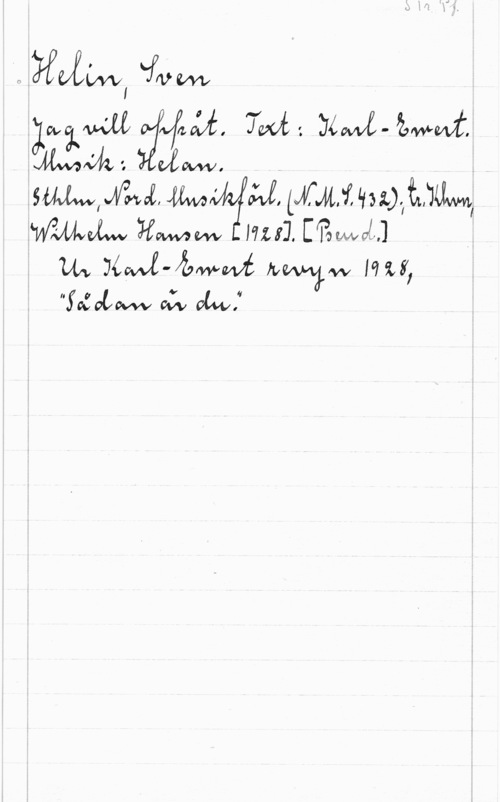 Helin, Sven
Jag vill oppåt. Text: Karl-Ewert.
Musik: Helan.
Sthlm, Nord. Musikförl. (N.M.S. 432); tr. Khvn,
Wilhelm Hansen [1928]. [Pseud.]
Ur Karl-Ewert revyn 1928,
"Sådan är du."